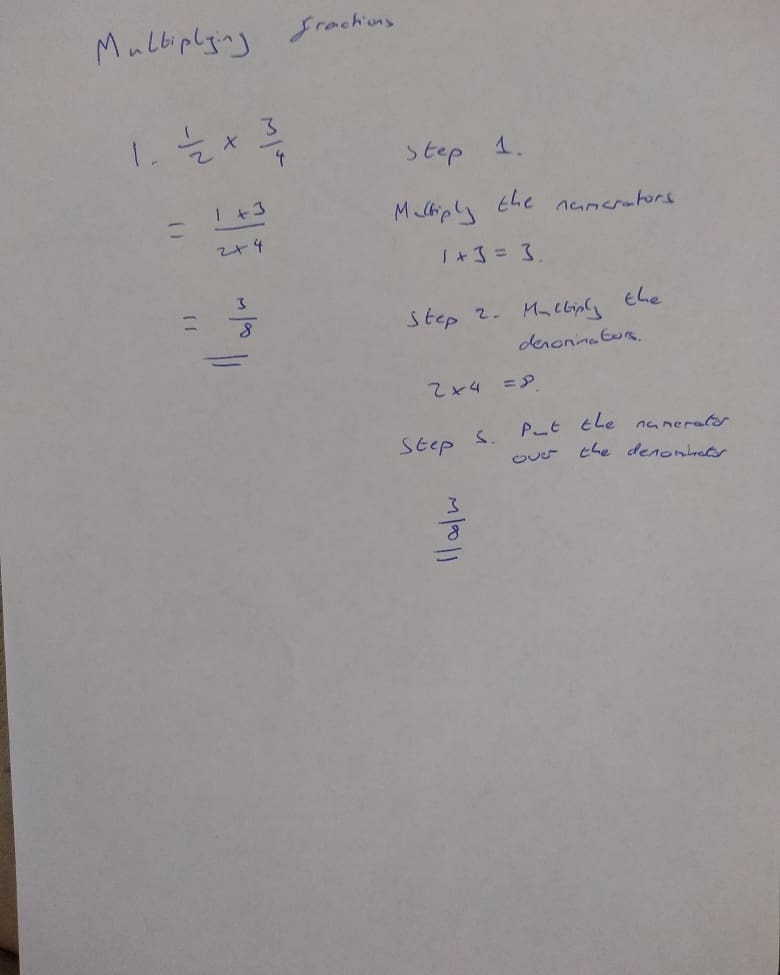 Multiplying fractions
1. 1/2 × 3/4
= 1×3/2×4
= 3/8
Step 1.
Multiply the numerators
1×3 = 3.
Step 2. Multiply the
denominators.
2×4 = 8.
Step 3. Put the numerator
over the denominator
3/8